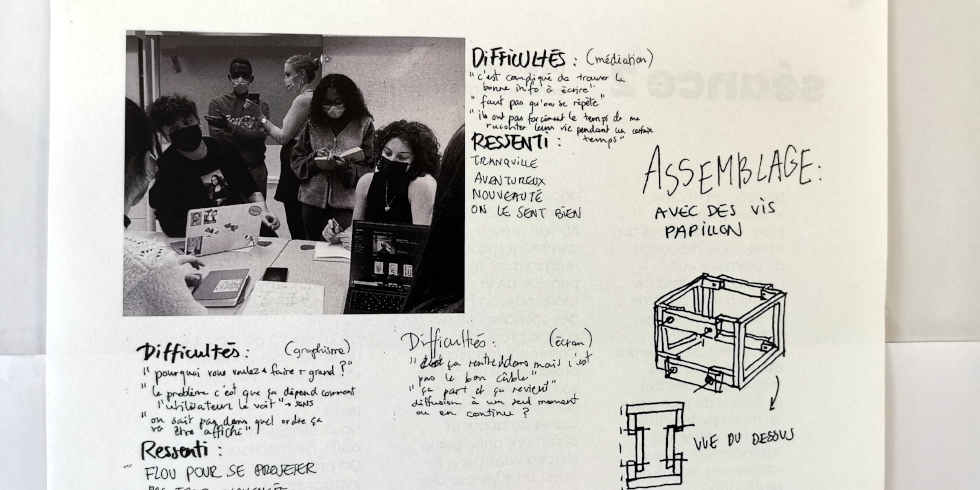 DIFFICULTÉS : (médiation)
"c'est compliqué de trouver la
bonne info à écrire"
"faut pas qu'on se répète"
"ils ont pas forcément le temps de me
raconter leur vie pendant un certain
temps"
RESSENTI :
TRANQUILLE
AVENTUREUX
NOUVEAUTÉ
ON LE SENT BIEN
ASSEMBLAGE :
AVEC DES VIS
PAPILLON
Difficultés : (graphisme)
"pourquoi vous voulez faire + grand ?"
"le problème c'est que ça dépend comment
l'utilisateur le voit" → sens
"on sait pas dans quel ordre ça
va être affiché"
Ressenti :
FLOU POUR SE PROJETER
Difficultés : (écran)
ça rentre dedans mais c'est
pas le bon câble"
"ça part et ça revient"
diffusion à un seul moment
ou en continu ?
VUE DU DESSUS
séance 2